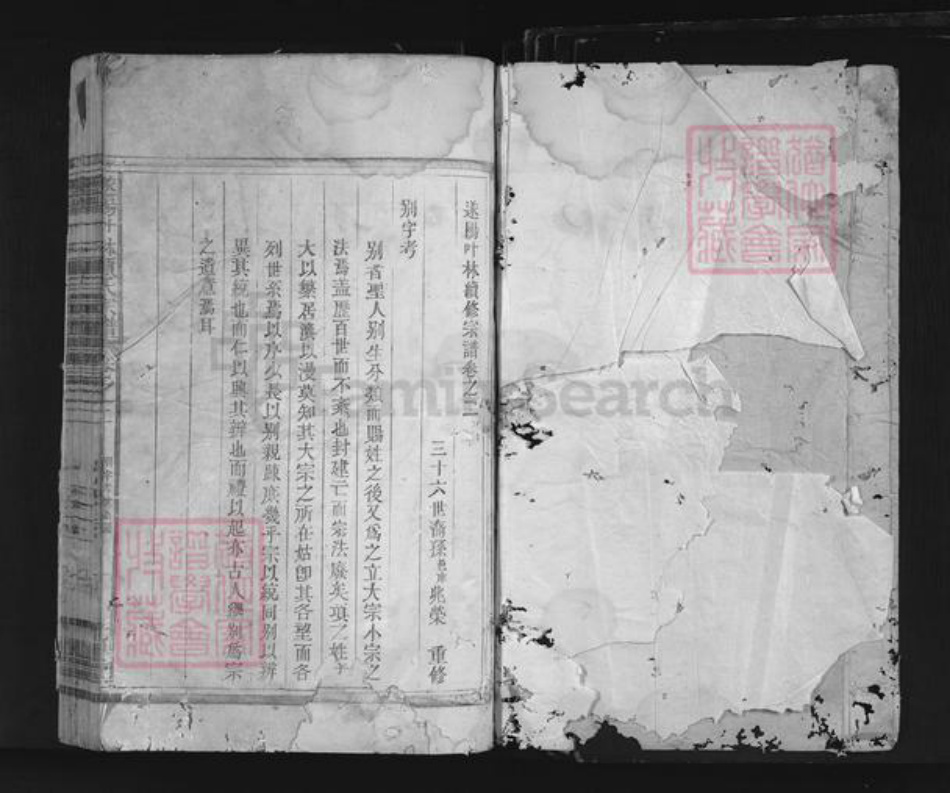 遂陽叶林續修宗譜卷之二
三十六世裔孫邑庠兆榮 重修
別字考
別者聖人別生分類而賜姓之後又爲之立大宗小宗之
法焉盖歷百世而不紊也封建亡而宗法廢矣項之姓于
大以樂居漢以漫莫知其大宗之所在姑卽其各望而各
列世系焉以序少長以別親踈庶幾乎宗以統同別以辨
異其統也而仁以興其辨也而禮以起亦古人繼別爲宗
之遺意焉耳
FamilySearch